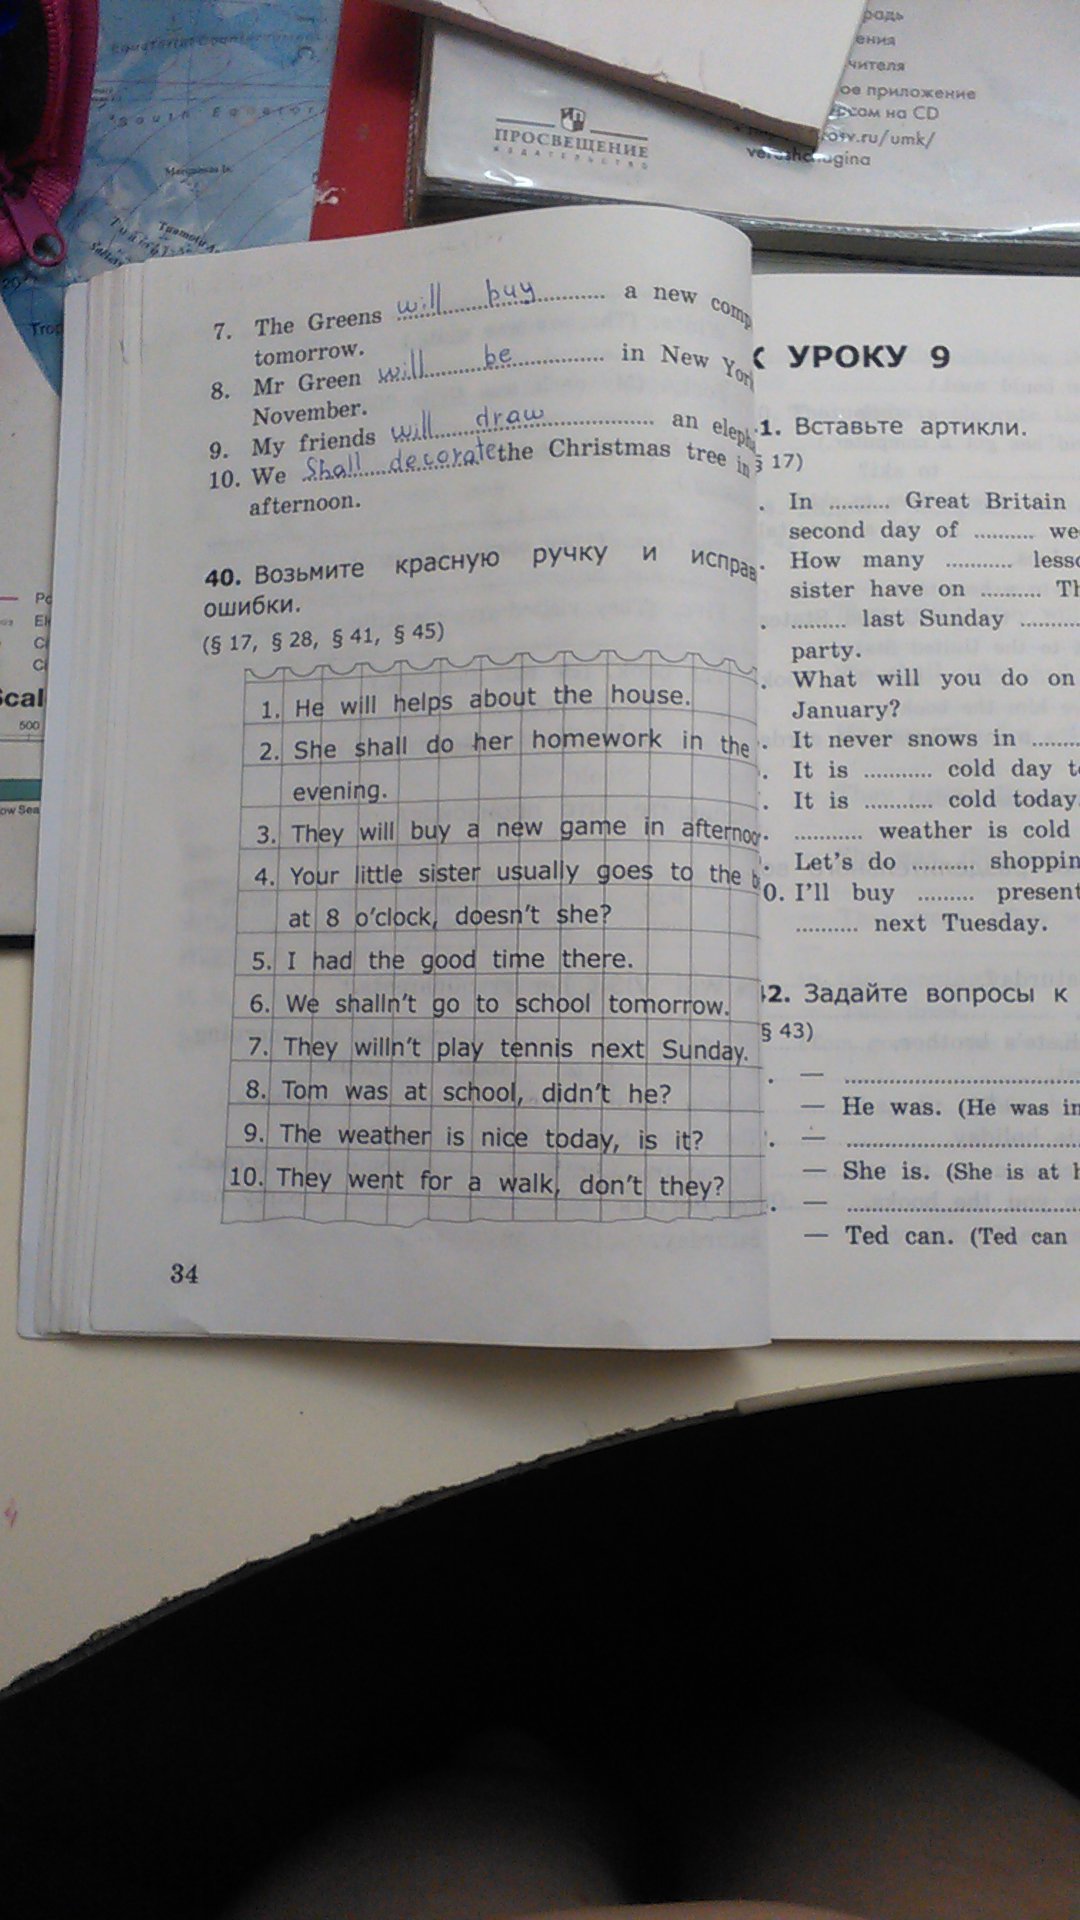 South Equatori
Marquesas Is.
ПРОСВЕЩЕНИЕ
ИЗДАТЕЛЬСТВО
ения
ое приложение
сом на CD
.ru/umk/
7. The Greens will buy a new comp
tomorrow.
8. Mr Green will be in New York
November.
9. My friends will draw an elepha
10. We Shall decorate the Christmas tree in
afternoon.
40. Возьмите красную ручку и исправ
ошибки.
(§ 17, § 28, § 41, § 45)
1. He will helps about the house.
2. She shall do her homework in the
evening.
3. They will buy a new game in afternoo
4. Your little sister usually goes to the
at 8 o'clock, doesn't she?
5. I had the good time there.
6. We shalln't go to school tomorrow.
7. They willn't play tennis next Sunday.
8. Tom was at school, didn't he?
9. The weather is nice today, is it?
10. They went for a walk, don't they?
34
К УРОКУ 9
1. Вставьте артикли.
§ 17)
. In .......... Great Britain
second day of .......... we
. How many ........... lesso
sister have on .......... Th
. .......... last Sunday ..........
party.
. What will you do on
January?
. It never snows in ..........
. It is ........... cold day t
. It is ........... cold today.
. ........... weather is cold
. Let's do .......... shoppin
0. I'll buy ......... present
.......... next Tuesday.
2. Задайте вопросы к
§ 43)
. — ..........
— He was. (He was in
. — ..........
— She is. (She is at h
. — ..........
— Ted can. (Ted can
Scal
500
ow Sea